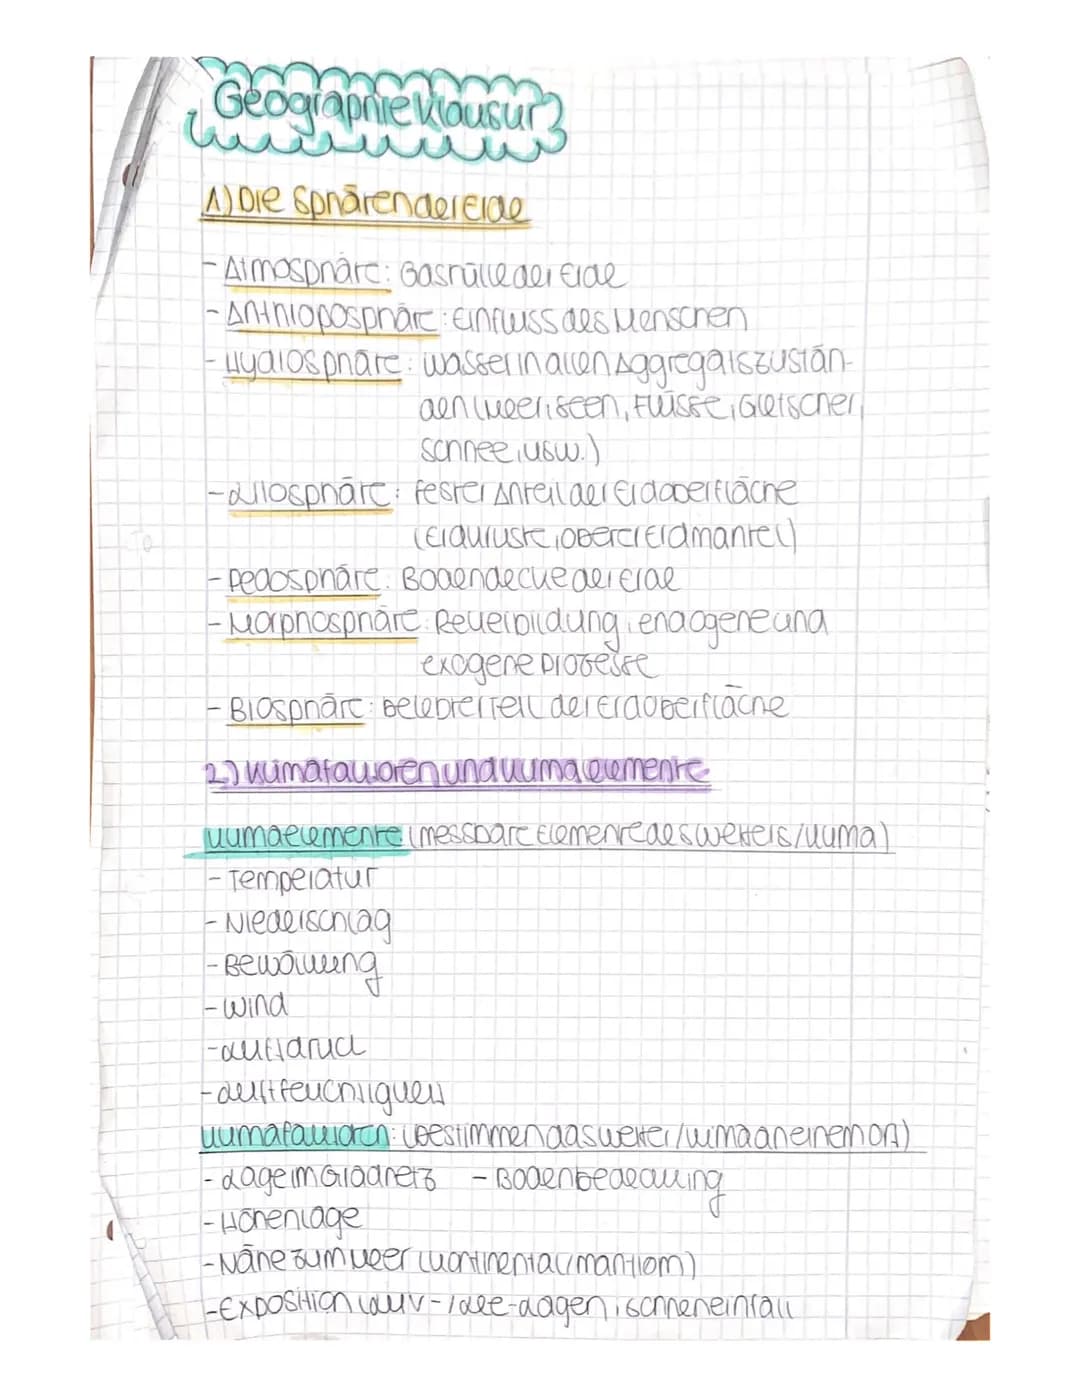 Geographie Klausur
1) Die Sphären der Erde
- Atmosphäre: Gashülle der Erde
- Anthroposphäre: Einfluss des Menschen
- Hydrosphäre: Wasser in allen Aggregatszustän-
den (Meer, Seen, Flüsse, Gletscher,
Schnee, usw.)
- Lithosphäre: fester Anteil der Erdoberfläche
(Erdkruste, oberer Erdmantel)
- Pedosphäre: Bodendecke der Erde
- Morphosphäre: Reliefbildung, endogene und
exogene Prozesse
- Biosphäre: belebter Teil der Erdoberfläche
2.) Klimafaktoren und Klimaelemente
Klimaelemente: (messbare Elemente des Wetters/Klima)
- Temperatur
- Niederschlag
- Bewölkung
- Wind
- Luftdruck
- Luftfeuchtigkeit
Klimafaktoren: (bestimmen das Wetter/Klima an einem Ort)
- Lage im Gradnetz - Bodenbedeckung
- Höhenlage
- Nähe zum Meer (kontinental/maritim)
- Exposition (Luv-/Lee-Lagen, Sonneneinfall